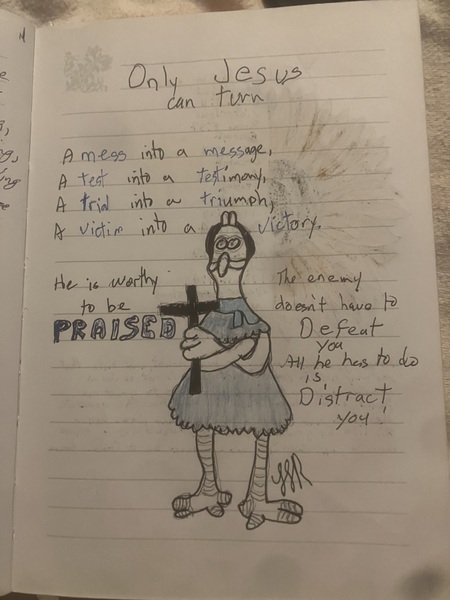 Only Jesus
can turn
A mess into a message,
A test into a testimony,
A trial into a triumph,
A victim into a victory.
He is worthy
to be
PRAISED
The enemy
doesn't have to
Defeat
you
All he has to do
is
Distract
you!